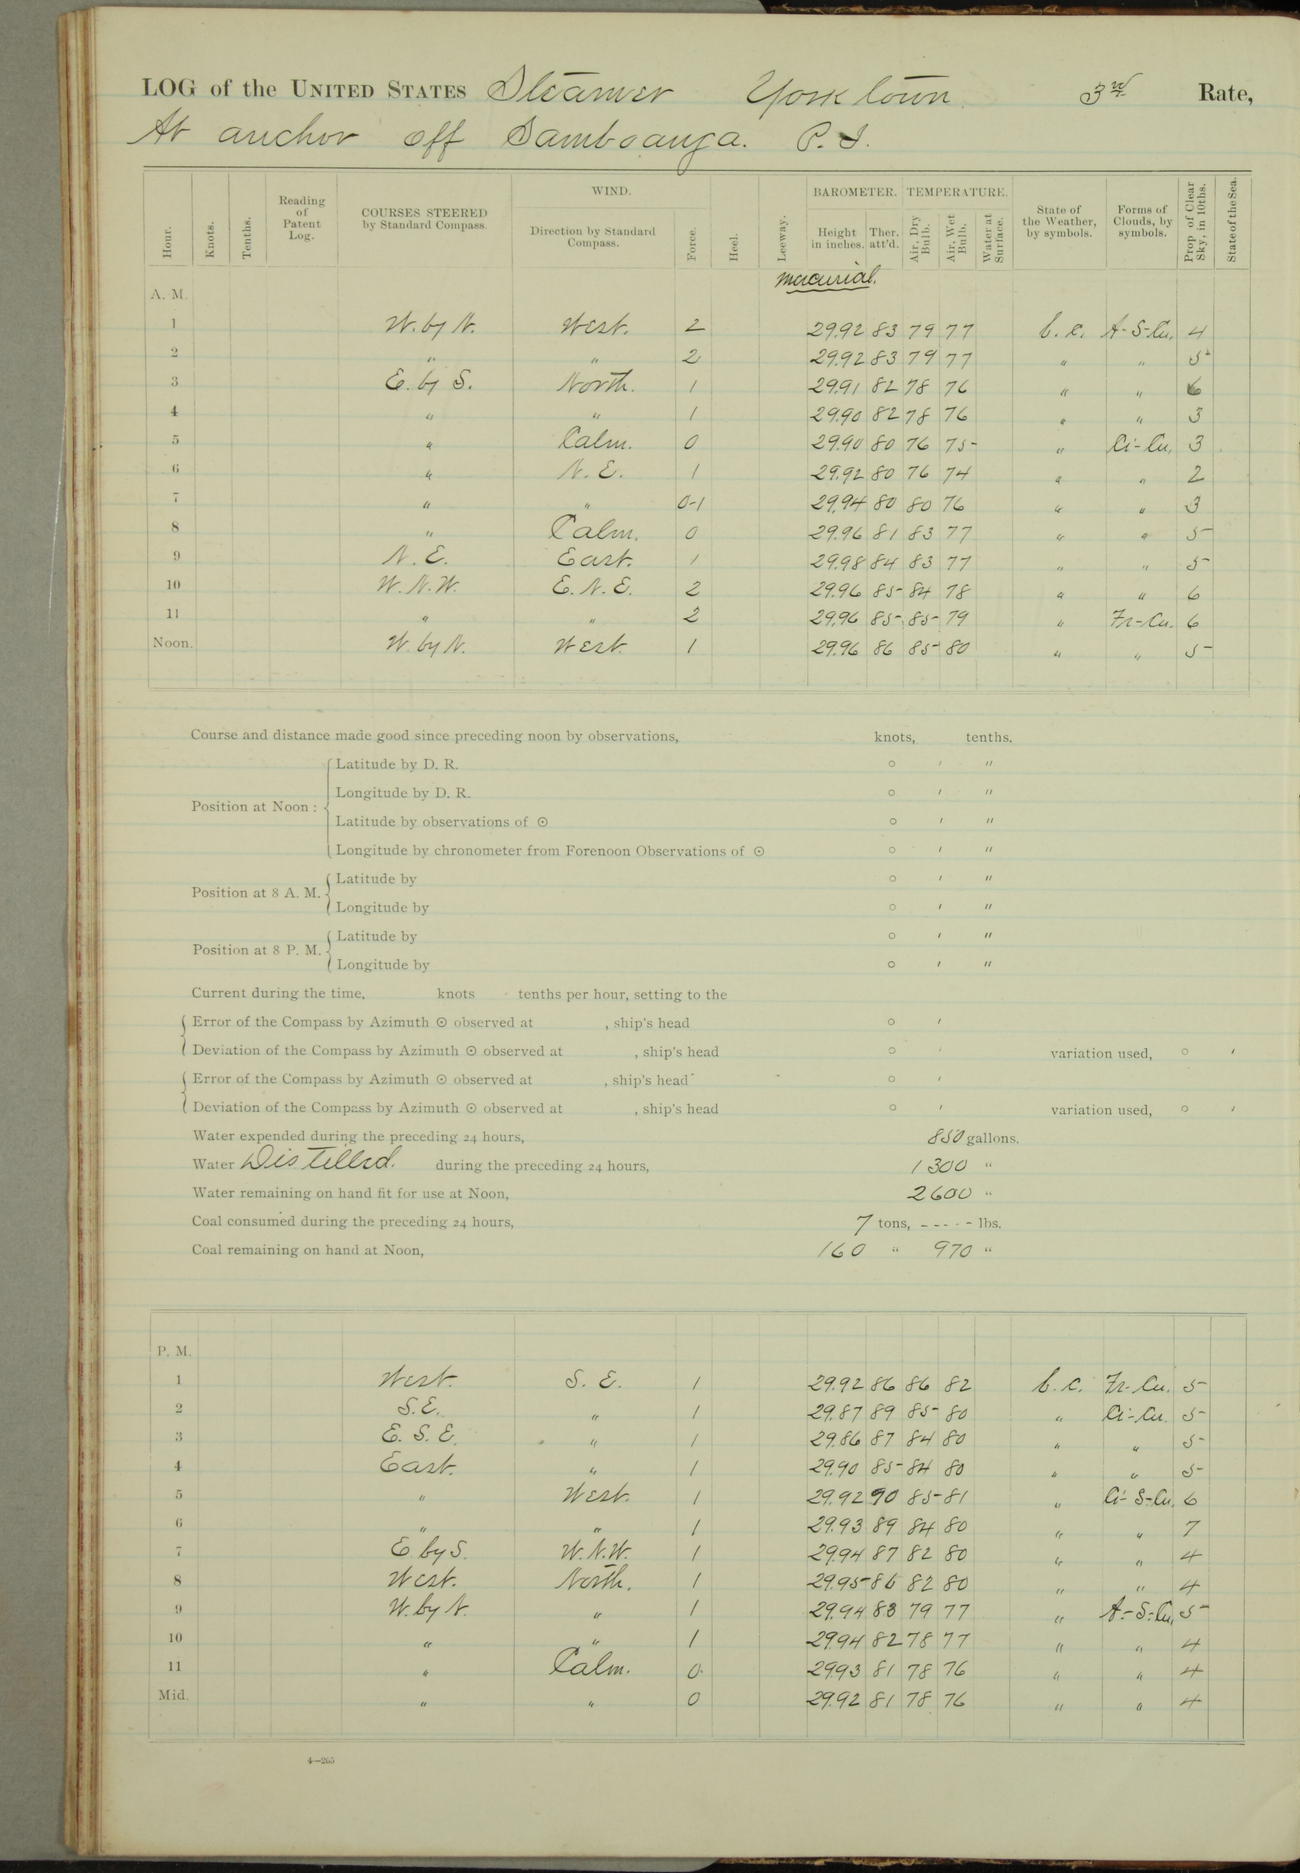 LOG of the UNITED STATES Steamer Yorktown 3rd Rate,
At anchor off Samboanga. P. I.
Hour. Knots. Tenths. Reading of Patent Log. COURSES STEERED by Standard Compass. WIND. Direction by Standard Compass. Force. Heel. Leeway. BAROMETER. Height in inches. Ther. att'd. TEMPERATURE. Air, Dry Bulb. Air, Wet Bulb. Water at Surface. State of the Weather, by symbols. Forms of Clouds, by symbols. Prop of Clear Sky, in 10ths. State of the Sea.
mercurial.
A. M.
1 W. by N. West. 2 29.92 83 79 77 b. c. A-S-Cu. 4
2 " " 2 29.92 83 79 77 " " 5
3 E. by S. North. 1 29.91 82 78 76 " " 6
4 " " 1 29.90 82 78 76 " " 3
5 " Calm. 0 29.90 80 76 75 " Ci-Cu. 3
6 " N. E. 1 29.92 80 76 74 " " 2
7 " " 0-1 29.94 80 80 76 " " 3
8 " Calm. 0 29.96 81 83 77 " " 5
9 N. E. East. 1 29.98 84 83 77 " " 5
10 W. N. W. E. N. E. 2 29.96 85 84 78 " " 6
11 " " 2 29.96 85 85 79 " Fr-Cu. 6
Noon. W. by N. West. 1 29.96 86 85 80 " " 5
Course and distance made good since preceding noon by observations, knots, tenths.
Position at Noon :
Latitude by D. R. ° ′ ″
Longitude by D. R. ° ′ ″
Latitude by observations of ☉ ° ′ ″
Longitude by chronometer from Forenoon Observations of ☉ ° ′ ″
Position at 8 A. M.
Latitude by ° ′ ″
Longitude by ° ′ ″
Position at 8 P. M.
Latitude by ° ′ ″
Longitude by ° ′ ″
Current during the time, knots tenths per hour, setting to the
Error of the Compass by Azimuth ☉ observed at , ship's head ° ′
Deviation of the Compass by Azimuth ☉ observed at , ship's head ° ′ variation used, ° ′
Error of the Compass by Azimuth ☉ observed at , ship's head ° ′
Deviation of the Compass by Azimuth ☉ observed at , ship's head ° ′ variation used, ° ′
Water expended during the preceding 24 hours, 850 gallons.
Water Distilled. during the preceding 24 hours, 1300 "
Water remaining on hand fit for use at Noon, 2600 "
Coal consumed during the preceding 24 hours, 7 tons, ----- lbs.
Coal remaining on hand at Noon, 160 " 970 "
P. M.
1 West. S. E. 1 29.92 86 86 82 b. c. Fr-Cu. 5
2 S. E. " 1 29.87 89 85 80 " Ci-Cu. 5
3 E. S. E. " 1 29.86 87 84 80 " " 5
4 East. " 1 29.90 85 84 80 " " 5
5 " West. 1 29.92 90 85 81 " Ci-S-Cu. 6
6 " " 1 29.93 89 84 80 " " 7
7 E by S. W. N. W. 1 29.94 87 82 80 " " 4
8 West. North. 1 29.95 86 82 80 " " 4
9 W. by N. " 1 29.94 83 79 77 " A-S-Cu. 5
10 " " 1 29.94 82 78 77 " " 4
11 " Calm. 0 29.93 81 78 76 " " 4
Mid. " " 0 29.92 81 78 76 " " 4
4—265